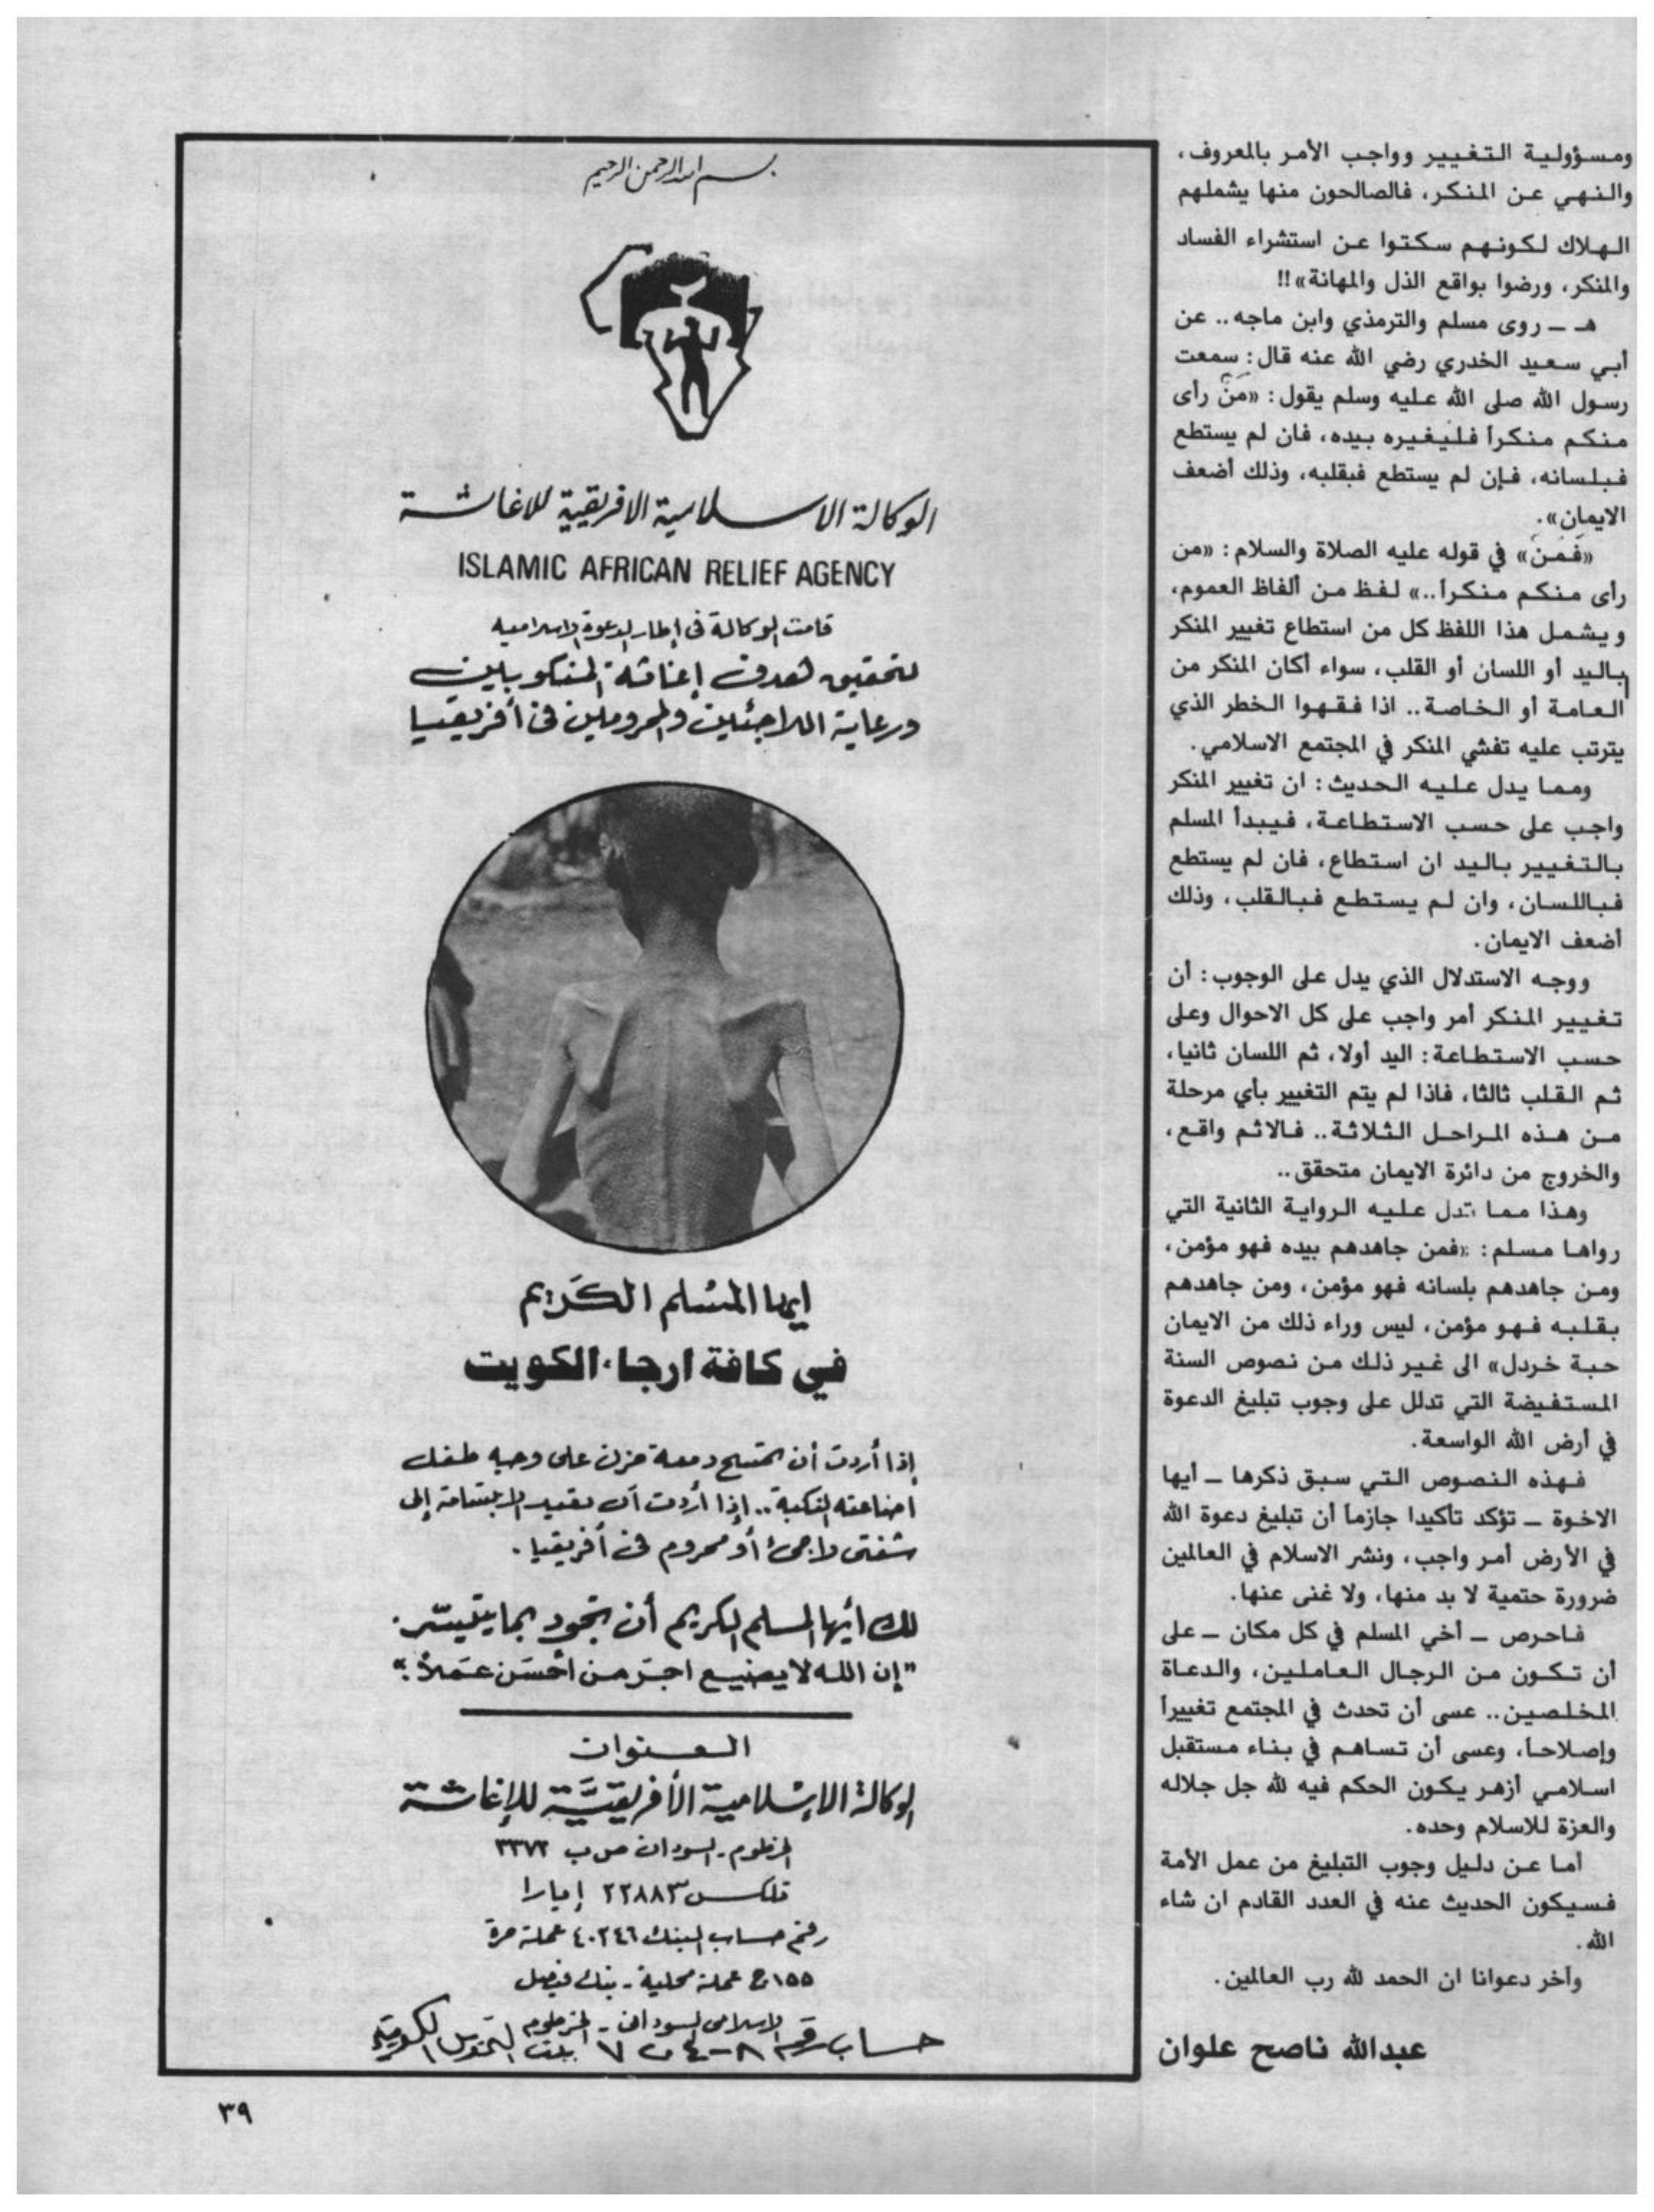 ومسؤولية التغيير وواجب الأمر بالمعروف،
والنهي عن المنكر، فالصالحون منها يشملهم
الهلاك لكونهم سكتوا عن استشراء الفساد
والمنكر، ورضوا بواقع الذل والمهانة»!!
هـ ــ روى مسلم والترمذي وابن ماجه.. عن
أبي سعيد الخدري رضي الله عنه قال: سمعت
رسول الله صلى الله عليه وسلم يقول: «مَنْ رأى
منكم منكراً فليغيره بيده، فان لم يستطع
فبلسانه، فإن لم يستطع فبقلبه، وذلك أضعف
الايمان».
«فَمَنْ» في قوله عليه الصلاة والسلام: «من
رأى منكم منكراً..» لفظ من ألفاظ العموم،
ويشمل هذا اللفظ كل من استطاع تغيير المنكر
باليد أو اللسان أو القلب، سواء أكان المنكر من
العامة أو الخاصة.. اذا فقهوا الخطر الذي
يترتب عليه تفشي المنكر في المجتمع الاسلامي.
ومما يدل عليه الحديث: ان تغيير المنكر
واجب على حسب الاستطاعة، فيبدأ المسلم
بالتغيير باليد ان استطاع، فان لم يستطع
فباللسان، وان لم يستطع فبالقلب، وذلك
أضعف الايمان.
ووجه الاستدلال الذي يدل على الوجوب: أن
تغيير المنكر أمر واجب على كل الاحوال وعلى
حسب الاستطاعة: اليد أولا، ثم اللسان ثانيا،
ثم القلب ثالثا، فاذا لم يتم التغيير بأي مرحلة
من هذه المراحل الثلاثة.. فالاثم واقع،
والخروج من دائرة الايمان متحقق..
وهذا مما تدل عليه الرواية الثانية التي
رواها مسلم: «فمن جاهدهم بيده فهو مؤمن،
ومن جاهدهم بلسانه فهو مؤمن، ومن جاهدهم
بقلبه فهو مؤمن، ليس وراء ذلك من الايمان
حبة خردل» الى غير ذلك من نصوص السنة
المستفيضة التي تدلل على وجوب تبليغ الدعوة
في أرض الله الواسعة.
فهذه النصوص التي سبق ذكرها ــ أيها
الاخوة ــ تؤكد تأكيدا جازماً أن تبليغ دعوة الله
في الأرض أمر واجب، ونشر الاسلام في العالمين
ضرورة حتمية لا بد منها، ولا غنى عنها.
فاحرص ــ أخي المسلم في كل مكان ــ على
أن تكون من الرجال العاملين، والدعاة
المخلصين.. عسى أن تحدث في المجتمع تغييراً
وإصلاحاً، وعسى أن تساهم في بناء مستقبل
اسلامي أزهر يكون الحكم فيه لله جل جلاله
والعزة للاسلام وحده.
أما عن دليل وجوب التبليغ من عمل الأمة
فسيكون الحديث عنه في العدد القادم ان شاء
الله.
وآخر دعوانا ان الحمد لله رب العالمين.
عبدالله ناصح علوان
بسم الله الرحمن الرحيم
الوكالة الاسلامية الافريقية للاغاثة
ISLAMIC AFRICAN RELIEF AGENCY
قامت الوكالة في إطار الدعوة الإسلامية
لتحقيق هدف إغاثة المنكوبين
ورعاية اللاجئين والمحرومين في أفريقيا
ايها المسلم الكَريم
في كافة ارجاء الكويت
إذا أردت أن تمسح دمعة حزن على وجه طفل
أضاعته النكبة.. إذا أردت أن تعيد الابتسامة إلى
شفتي لاجئ أو محروم في أفريقيا.
لك أيها المسلم الكريم أن تجود بما يتيسّر.
"إن الله لا يضيع اجر من أحسَن عَملاً"
العنوان
الوكالة الإسلامية الأفريقيَّة للإغاثة
الخرطوم - السودان ص ب ٣٣٧٢
تلكس ٢٢٨٨٣ إيارا
رقم حساب البنك ٤٠٢٤٦ عملة حرة
١٥٥ع عملة محلية - بنك فيصل
الإسلامي السوداني - الخرطوم
حساب رقم بيت التمويل الكويتي
٣٩